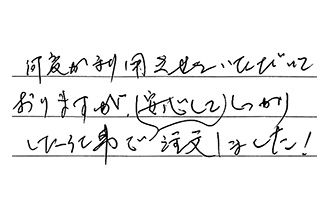 何度か利用させていただいて
おりますが、(安心して)しっかり
した で注文しました!